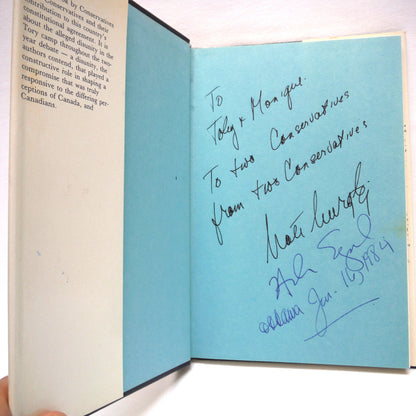 ed by Conservatives
Conservatives and their
contribution to this country's
constitutional agreement. It is
about the alleged disunity in the
Tory camp throughout the two-
year debate — a disunity, the
authors contend, that played a
constructive role in shaping a
compromise that was truly
responsive to the differing per-
ceptions of Canada, and
Canadians.
To
Toby & Monique.
To two Conservatives
from two Conservatives
Ottawa Jan. 16/1984